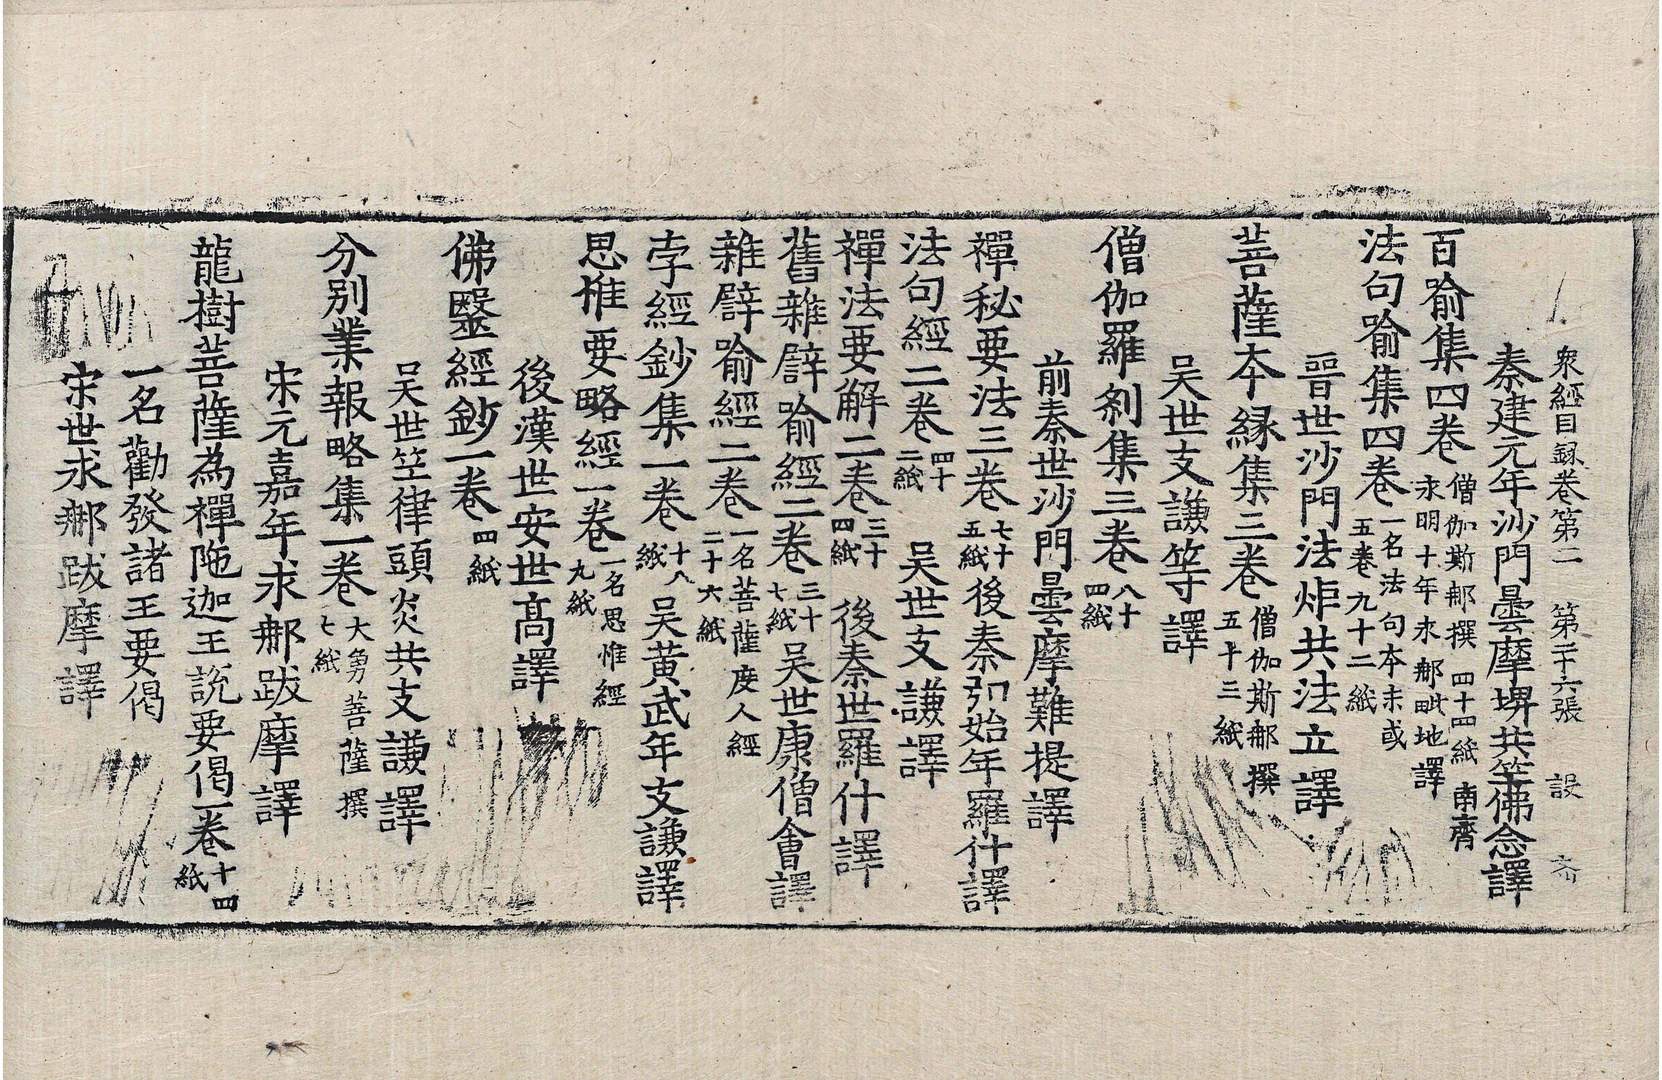 衆經目錄卷第二 第二十六張 設
秦建元年沙門曇摩埤共竺佛念譯
百喻集四卷 僧伽斯那撰 四十四紙 南齊永明十年求那毗地譯
法句喻集四卷 一名法句本末或五卷九十二紙
晉世沙門法炬共法立譯
菩薩本緣集三卷 僧伽斯那撰五十三紙
吳世支謙等譯
僧伽羅剎集三卷 八十四紙
前秦世沙門曇摩難提譯
禪秘要法三卷 七十五紙 後秦弘始年羅什譯
法句經二卷 四十二紙 吳世支謙譯
禪法要解二卷 三十四紙 後秦世羅什譯
舊雜譬喻經二卷 三十七紙 吳世康僧會譯
雜譬喻經二卷 一名菩薩度人經二十六紙
孛經鈔集一卷 十八紙 吳黃武年支謙譯
思惟要略經一卷 一名思惟經九紙
後漢世安世高譯
佛醫經鈔一卷 四紙
吳世竺律頭炎共支謙譯
分別業報略集一卷 大勇菩薩撰七紙
宋元嘉年求那跋摩譯
龍樹菩薩為禪陁迦王說要偈一卷 十四紙
一名勸發諸王要偈
宋世求那跋摩譯